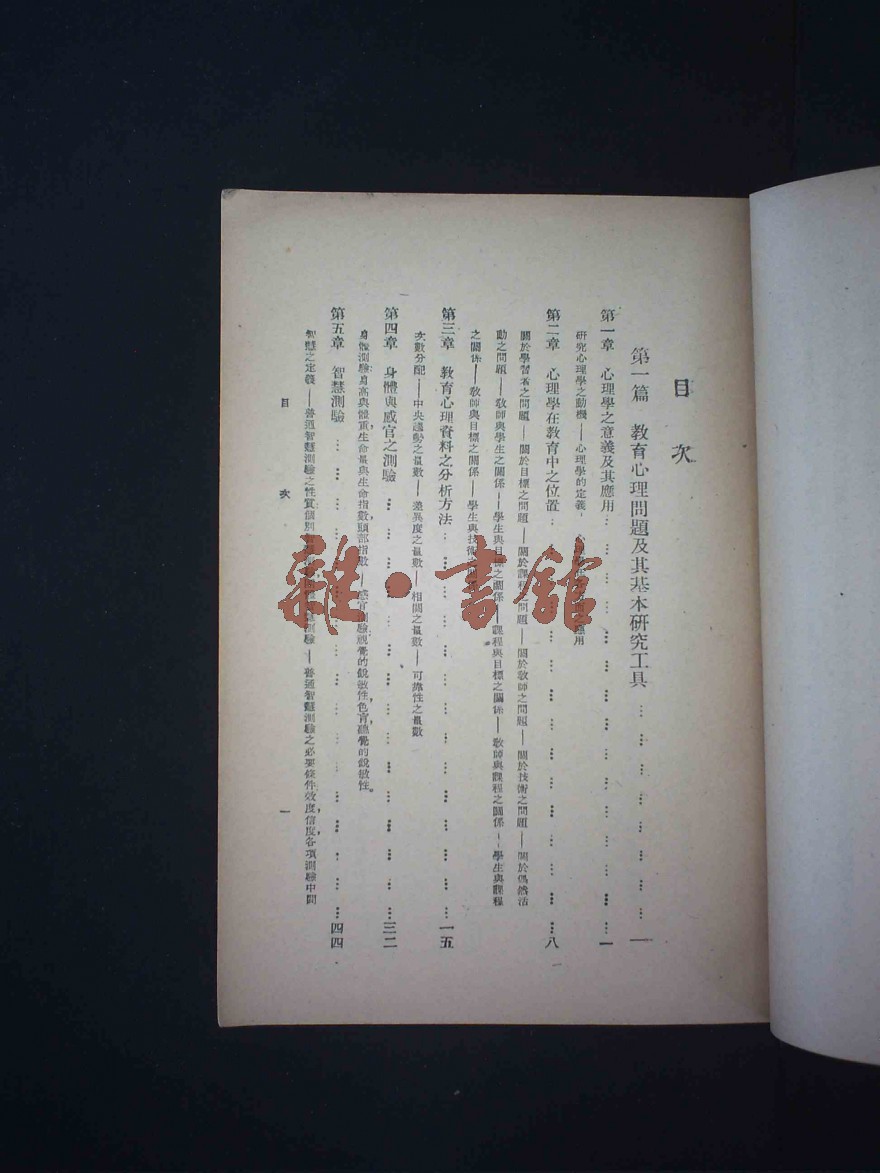 目次
第一篇 教育心理問題及其基本研究工具……一
第一章 心理學之意義及其應用……一
研究心理學之動機——心理學的定義——應用
第二章 心理學在教育中之位置……八
關於學習者之問題——關於目標之問題——關於課程之問題——關於教師之問題——關於技術之問題——關於偶然活
動之問題——教師與學生之關係——學生與目標之關係——課程與目標之關係——教師與課程之關係——學生與課程
之關係——教師與目標之關係——學生與技術之
第三章 教育心理資料之分析方法……一五
次數分配——中央趨勢之量數——差異度之量數——相關之量數——可靠性之量數
第四章 身體與感官之測驗……三二
身體測驗:身高與體重,生命量與生命指數,頭部指數——感官測驗:視覺的銳敏性,色盲,聽覺的銳敏性。
第五章 智慧測驗……四四
智慧之定義——普通智慧測驗之性質:個別測驗——普通智慧測驗之必要條件:效度,信度,各項測驗中間
目次 一
雜·書館